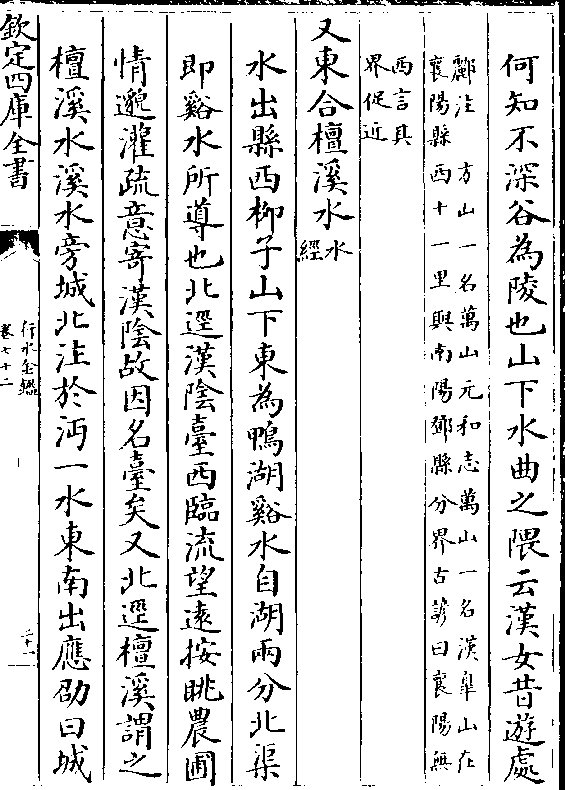 何知不深谷為陵也山下水曲之隈云漢女昔遊處
酈注方山一名萬山元和志萬山一名漢臯山在
襄陽縣西十一里與南陽鄧縣分界古諺曰襄陽無
西言其
界促近
又東合檀溪水水
經
水出縣西柳子山下東為鴨湖谿水自湖兩分北渠
即谿水所導也北逕漢陰臺西臨流望遠按眺農圃
情邈灌疏意寄漢陰故因名臺矣又北逕檀溪謂之
檀溪水溪水旁城北注於沔一水東南出應劭曰城
欽定四庫全書
行水金鑑
卷七十二
二十一